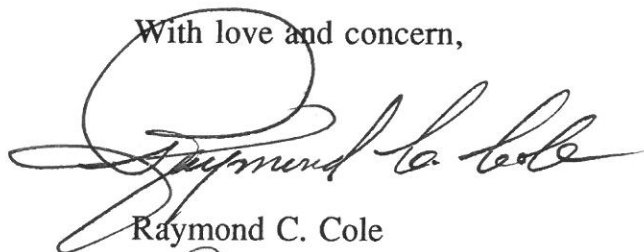 With love and concern,
Raymond C. Cole
Raymond C. Cole